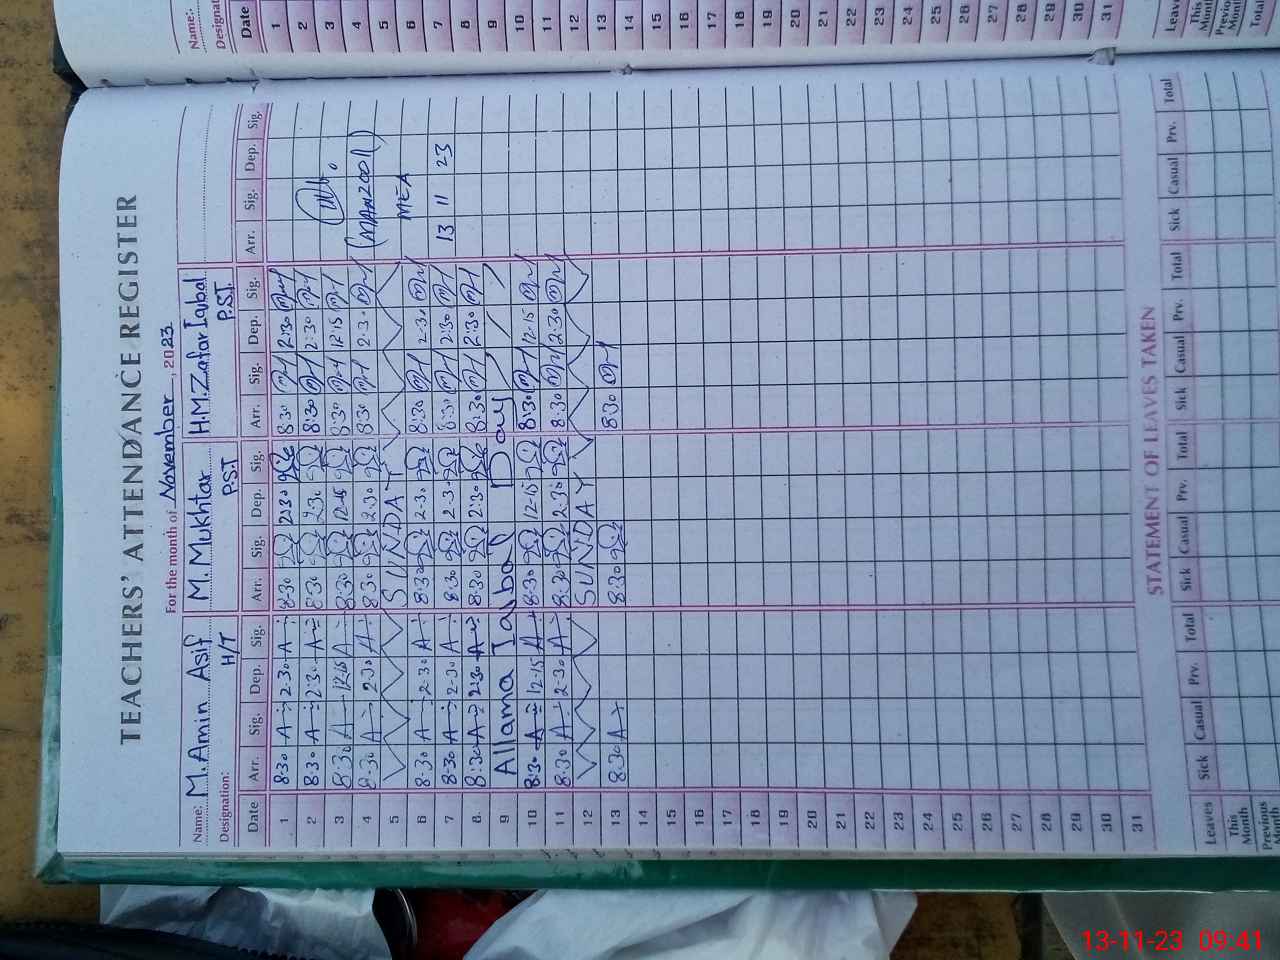 TEACHERS' ATTENDANCE REGISTER
For the month of November, 2023
Name: M. Amin Asif M. Mukhtar H.M.Zafar Iqbal
Designation: H/T P.S.T P.S.T.
Date Arr. Sig. Dep. Sig. Arr. Sig. Dep. Sig. Arr. Sig. Dep. Sig. Arr. Sig. Dep. Sig.
1 8:30 2:30 8:30 2:30 8:30 2:30
2 8:30 2:30 8:30 2:30 8:30 2:30
3 8:30 12:15 8:30 12-15 8:30 12:15
4 8:30 2:30 8:30 2:30 8:30 2:30 (MANZOOR)
5 SUNDAY MEA
6 8:30 2:30 8:30 2-30 8:30 2-30
7 8:30 2-30 8:30 2-30 8:30 2:30 13 11 23
8. 8:30 2:30 8:30 2:30 8:30 2:30
9 Allama Iqbal Day
10 8:30 12-15 8:30 12-15 8:30 12-15
11 8:30 2-30 8:30 2-30 8:30 2:30
12 SUNDAY
13 8:30 8:30 8:30
14
15
16
17
18
19
20
21
22
23
24
25
26
27
28
29
30
31
STATEMENT OF LEAVES TAKEN
Leaves Sick Casual Prv. Total Sick Casual Prv. Total Sick Casual Prv. Total Sick Casual Prv. Total
This Month
Previous Month
Name:
Designat
Date
1
2
3
4
5
6
7
8
9
10
11
12
13
14
15
16
17
18
19
20
21
22
23
24
25
26
27
28
29
30
31
Leave
This Mont
Previo Mont
Total
13-11-23 09:41